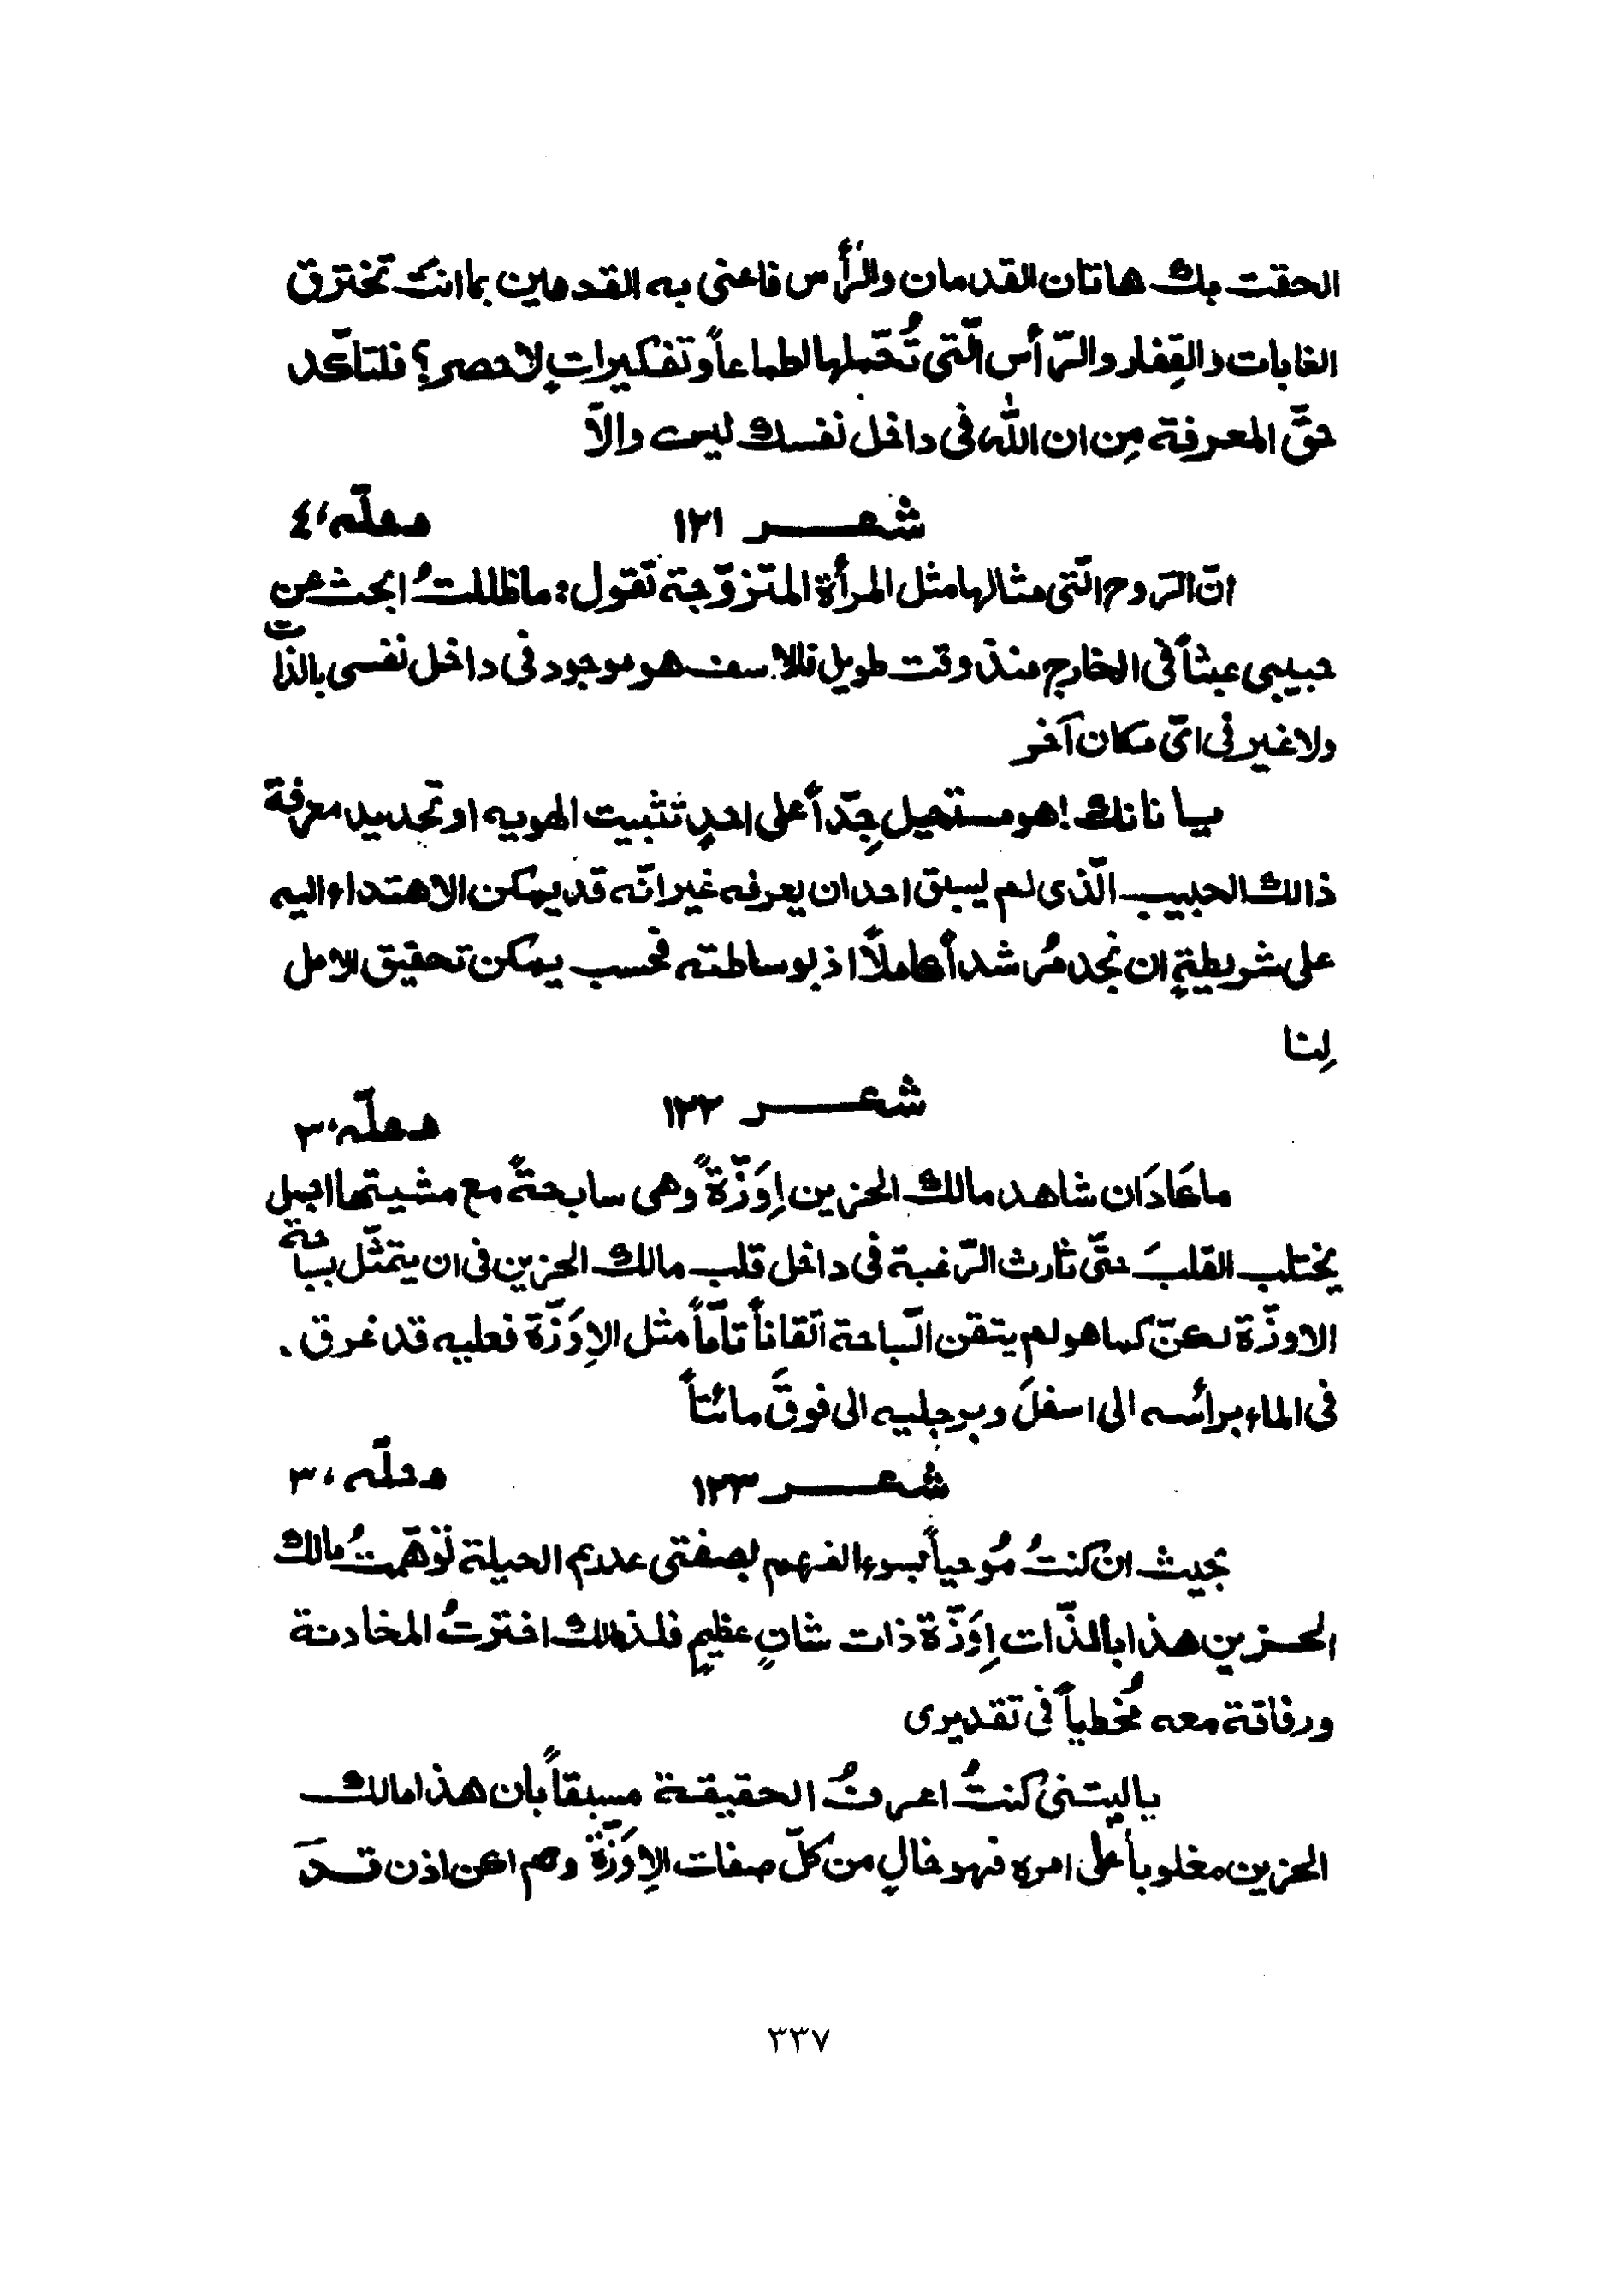 الحقت بك هاتان القدمان والرأس فاعنى به القدمين بما انك تخترق
الغابات والقِفار والرّأس الّتى تُحمّلها اطماعاً وتفكيراتٍ لاحصر؟ فلتاكّد
حقَّ المعرفة مِن ان الله فى داخل نفسك ليس والاّ
شعر ١٢١ محلّه ٤
انّ الرّوح الّتى مثالها مثل المرأة المتزوّجة تقول: ماظللتُ ابحث عن
حبيبى عبثاً فى الخارج منذ وقت طويل فللاسف هو موجود فى داخل نفسى بالذّات
ولاغير فى اىّ مكان آخر
يا نانك! هو مستحيل جِدّاً على احدٍ تثبيت الهويه او تحديد معرفة
ذالك الحبيب الّذى لم يسبق احد ان يعرفه غير انّه قد يمكن الاهتداء اليه
على شريطةٍ ان نجد مُرشداً كاملاً اذ بوساطته فحسب يمكن تحقيق الامل
لِنا
شعر ١٢٢ محلّه ٣
ماعَادَ ان شاهد مالك الحزين اِوَزّةً وهى سابحةً مع مشيتها اجبل
يختلب القلبَ حتّى ثارث الرّغبة فى داخل قلب مالك الحزين فى ان يتمثّل بساحة
الاوزّة لكنّ كما هو لم يتقن السّباحة اتقاناً تامّاً مثل الاِوَزّة فعليه قد غرق .
فى الماء برائسه الى اسفلَ وبرجليه الى فوقَ مائتاً
شعر ١٢٣ محلّه ٣
بحيث ان كنتُ مُوحياً بسوء الفهم بصفتى عديم الحيلة توّهمتُ مالك
الحزين هذا بالذّات اِوَزّة ذات شانٍ عظيمٍ فلذالك اخترتُ المخادنة
ورفاقة معه مُخطياً فى تقديرى
ياليتنى كنتُ اعرفُ الحقيقة مسبقاً بان هذا مالك
الحزين مغلوباً على امرهِ فهو خالٍ من كلّ صفات الاِوَزّة ولم اكن اذن قـدَ
٣٣٧